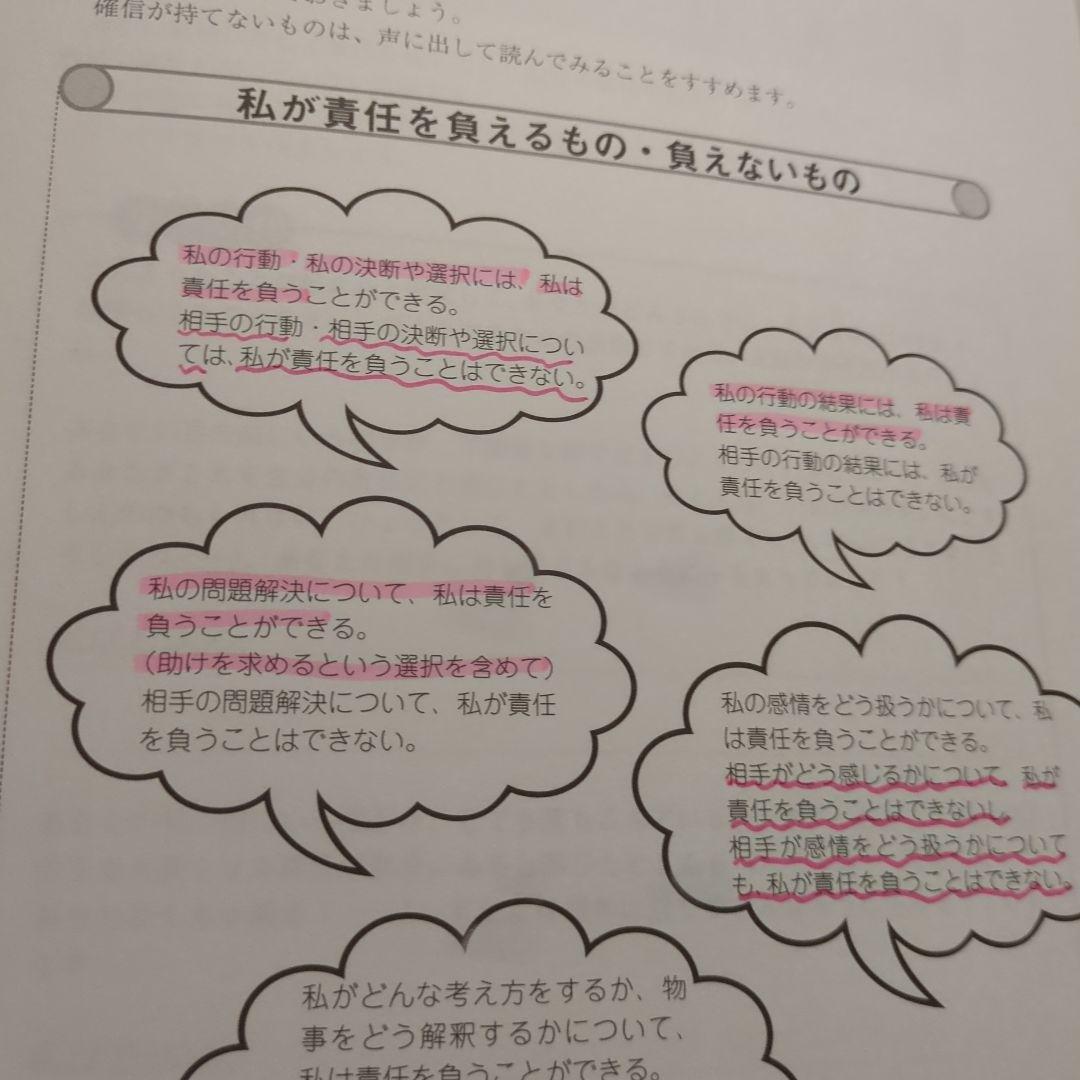 おきましょう。
確信が持てないものは、声に出して読んでみることをすすめます。
私が責任を負えるもの・負えないもの
私の行動・私の決断や選択には、私は
責任を負うことができる。
相手の行動・相手の決断や選択につい
ては、私が責任を負うことはできない。
私の行動の結果には、私は責
任を負うことができる。
相手の行動の結果には、私が
責任を負うことはできない。
私の問題解決について、私は責任を
負うことができる。
（助けを求めるという選択を含めて）
相手の問題解決について、私が責任
を負うことはできない。
私の感情をどう扱うかについて、私
は責任を負うことができる。
相手がどう感じるかについて、私が
責任を負うことはできないし、
相手が感情をどう扱うかについて
も、私が責任を負うことはできない。
私がどんな考え方をするか、物
事をどう解釈するかについて、
私は責任を負うことができる。